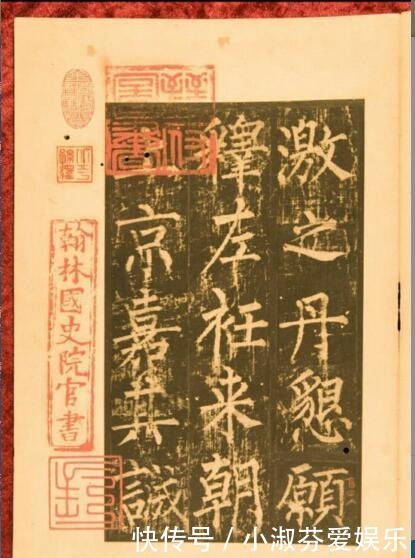 激之丹懇願
釋左衽来朝
京嘉其誠
翰林國史院官書
快传号 / 小淑芬爱娱乐